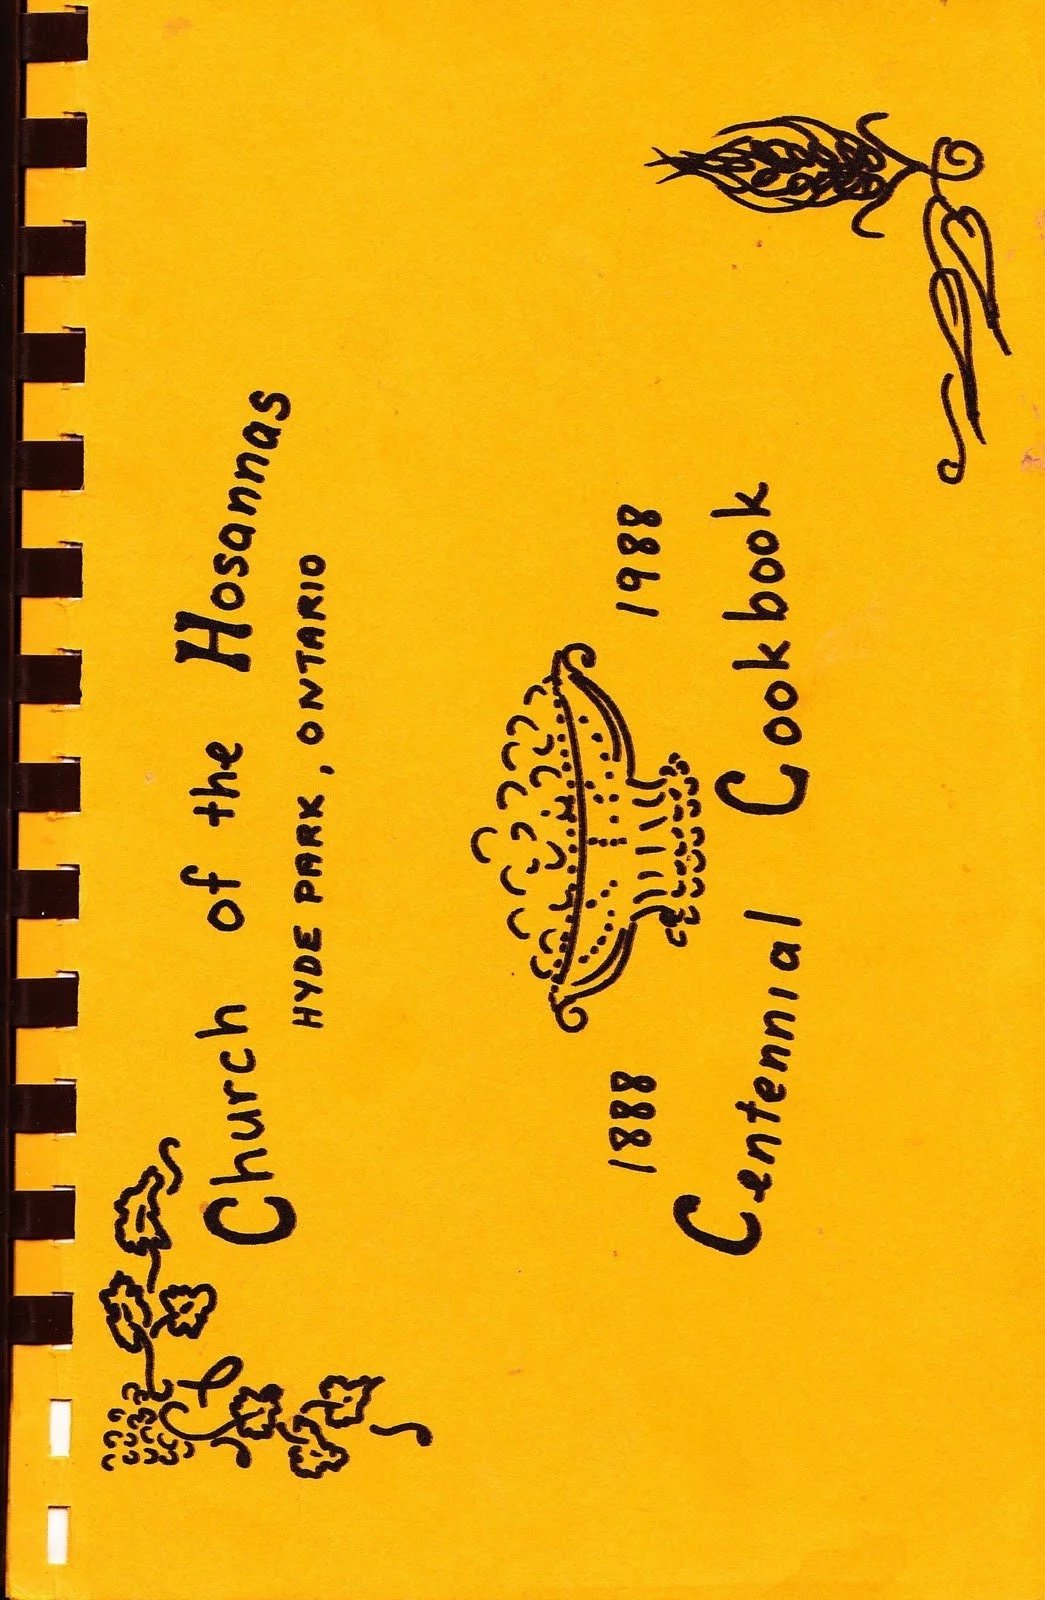 Church of the Hosannas
HYDE PARK, ONTARIO
1888 1988
Centennial Cookbook